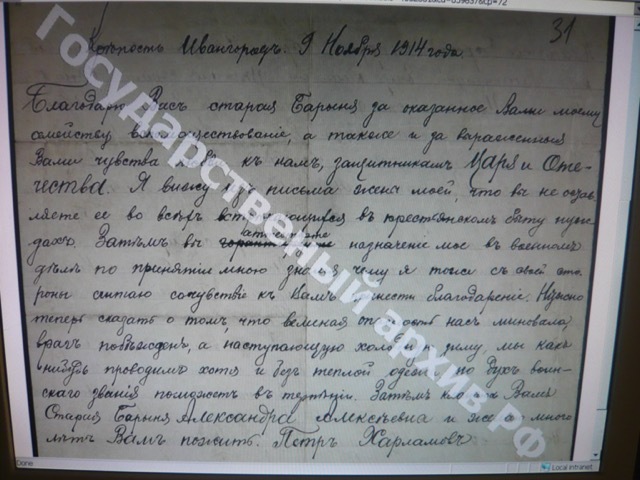 31
Крѣпость Ивангородъ 9 Ноября 1914 года
Благодарю Васъ старая Барыня за оказанное Вами моему
семейству вспомоществованіе, а также и за выраженныя
Вами чувства къ намъ, защитникамъ Царя и Оте-
чества. Я вижу изъ письма жены моей, что вы не остав-
ляете ее во всѣхъ встрѣчающихся въ крестьянскомъ быту нуж-
дахъ. Затѣмъ вы назначеніе мое въ военномъ
дѣлѣ по принятію мною чему я тоже съ своей сто-
роны считаю сочувствіе къ Вамъ принести благодареніе. Нужно
теперь сказать о томъ, что великая опасность насъ миновала,
врагъ побѣжденъ, а наступающую холодную зиму, мы какъ
нибудь проводимъ хотя и безъ теплой одежи, но духъ воин-
скаго званія поможетъ въ терпѣніи. Затѣмъ Вамъ
Старая Барыня Александра Алексѣевна и много
лѣтъ Вамъ пожить. Петръ Харламовъ
Государственный архив.РФ
Done
Local intranet